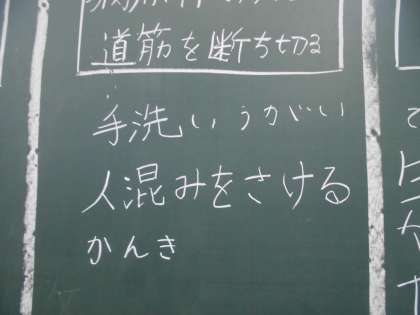 道筋を断ち切る
手洗いうがい
人混みをさける
かんき